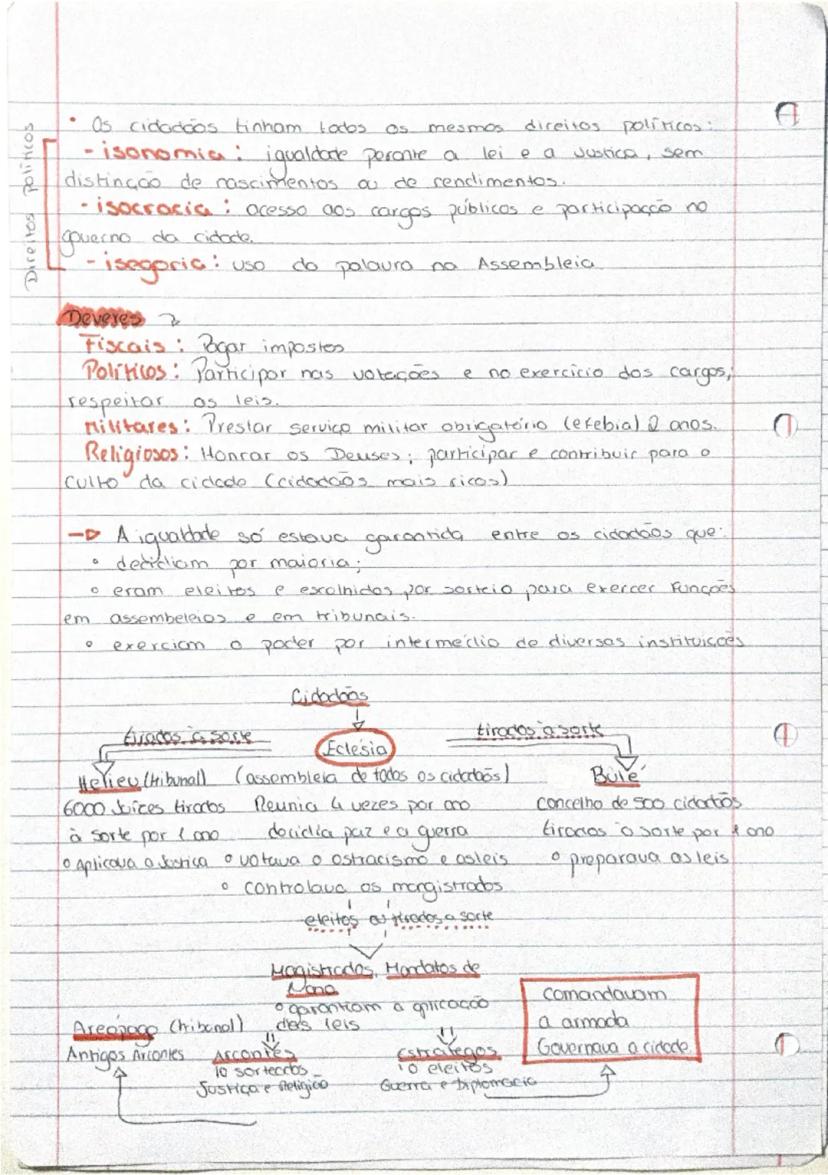 Direitos políticos
• Os cidadãos tinham todos os mesmos direitos políticos:
- isonomia: igualdade perante a lei e a Justiça, sem
distinção de nascimentos ou de rendimentos.
- isocracia: acesso aos cargos públicos e participação no
governo da cidade.
- isegoria: uso da palavra na Assembleia
Deveres
Fiscais: Pagar impostos
Políticos: Participar nas votações e no exercício dos cargos;
respeitar as leis.
Militares: Prestar serviço militar obrigatório (efebia) 2 anos.
Religiosos: Honrar os Deuses; participar e contribuir para o
culto da cidade (cidadãos mais ricos)
→ A igualdade só estava garantida entre os cidadãos que:
• decidiam por maioria;
• eram eleitos e escolhidos por sorteio para exercer funções
em assembeleias e em tribunais.
• exerciam o poder por intermédio de diversas instituições
Cidadãos
tirados à sorte Eclésia tirados à sorte
Helieu (tribunal) (assembleia de todos os cidadãos) Bulé
6000 Juízes tirados Reunia 4 vezes por ano concelho de 500 cidadãos
à sorte por 1 ano decidia paz e a guerra tirados à sorte por 1 ano
• Aplicava a Justiça • votava o ostracismo e as leis • preparava as leis
• controlava os margistrados
eleitos ou tirados a sorte
Magistrados, Mandatos de
• garantiam a aplicação
das leis
Comandavam
a armada
Governava a cidade
Areópago (tribunal)
Antigos Arcontes Arcontes Estrategos
10 sorteados 10 eleitos
Justiça e Religião Guerra e Diplomacia